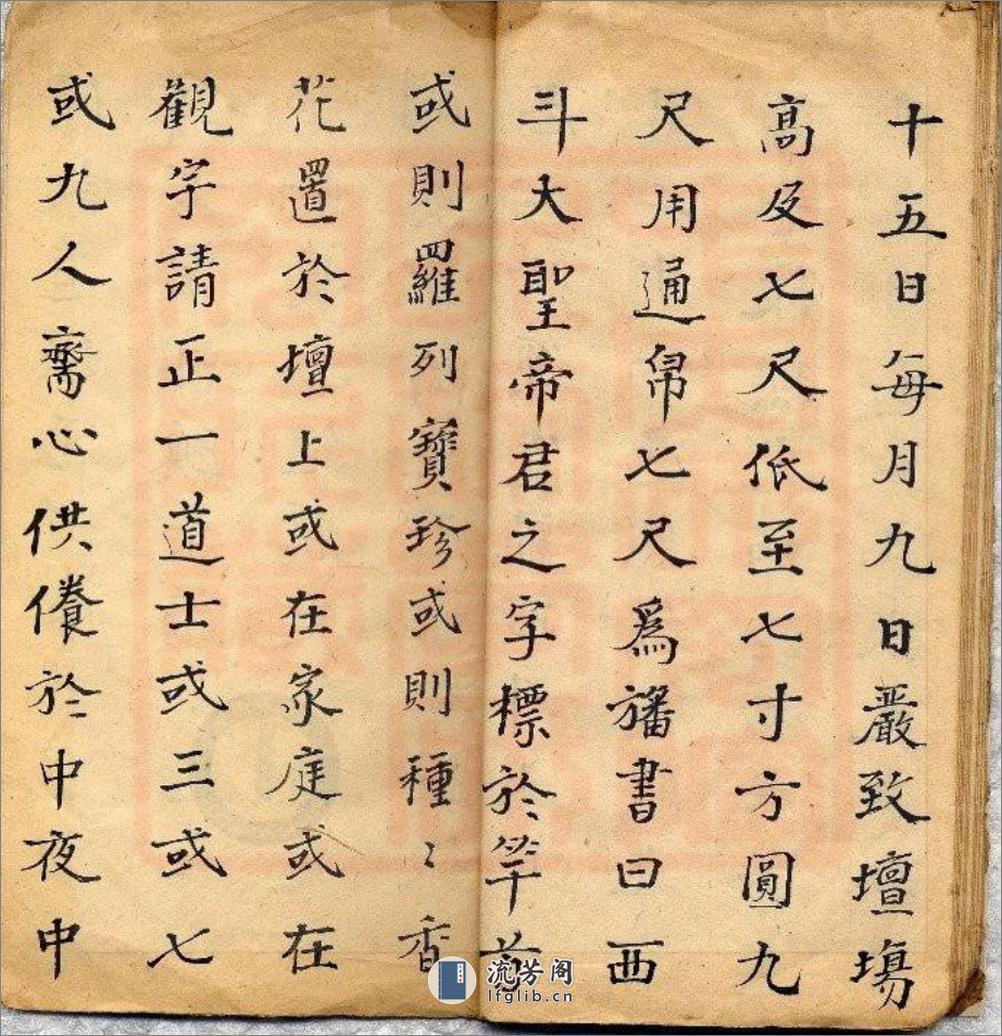 十五日每月九日嚴致壇塲
高及七尺低至七寸方圓九
尺用通帛七尺爲旛書曰西
斗大聖帝君之字標於竿
或則羅列寶珍或則種〻香
花置於壇上或在家庭或在
觀宇請正一道士或三或七
或九人齋心供養於中夜中
流芳阁
lfglib.cn